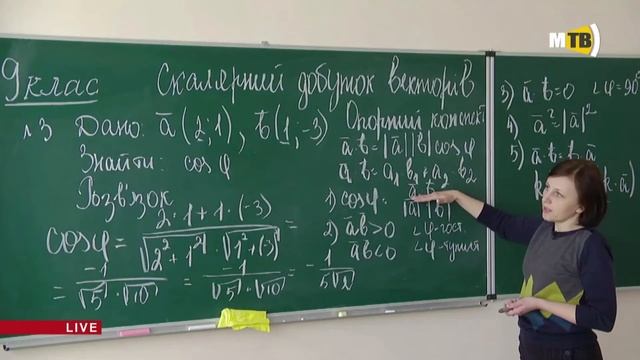 МТВ
9 клас Скалярний добуток векторів
№3 Дано: a̅(2;1), b̅(1;-3)
Знайти: cos φ
Розв'язок
cos φ = (2·1+1·(-3))/(√(2²+1²)·√(1²+(-3)²)) =
= -1/(√5·√10) = -1/(√5·√10) = -1/(5√2)
Опорний конспект
a̅·b̅=|a̅||b̅|cosφ
a̅·b̅=a₁b₁+a₂·b₂
1) cosφ= a̅·b̅/(|a̅||b̅|)
2) a̅b̅>0 ∠φ-гост.
a̅b̅<0 ∠φ-тупий
3) a̅·b̅=0 ∠φ=90°
4) a̅²=|a̅|²
5) a̅·b̅=b̅·a̅
LIVE